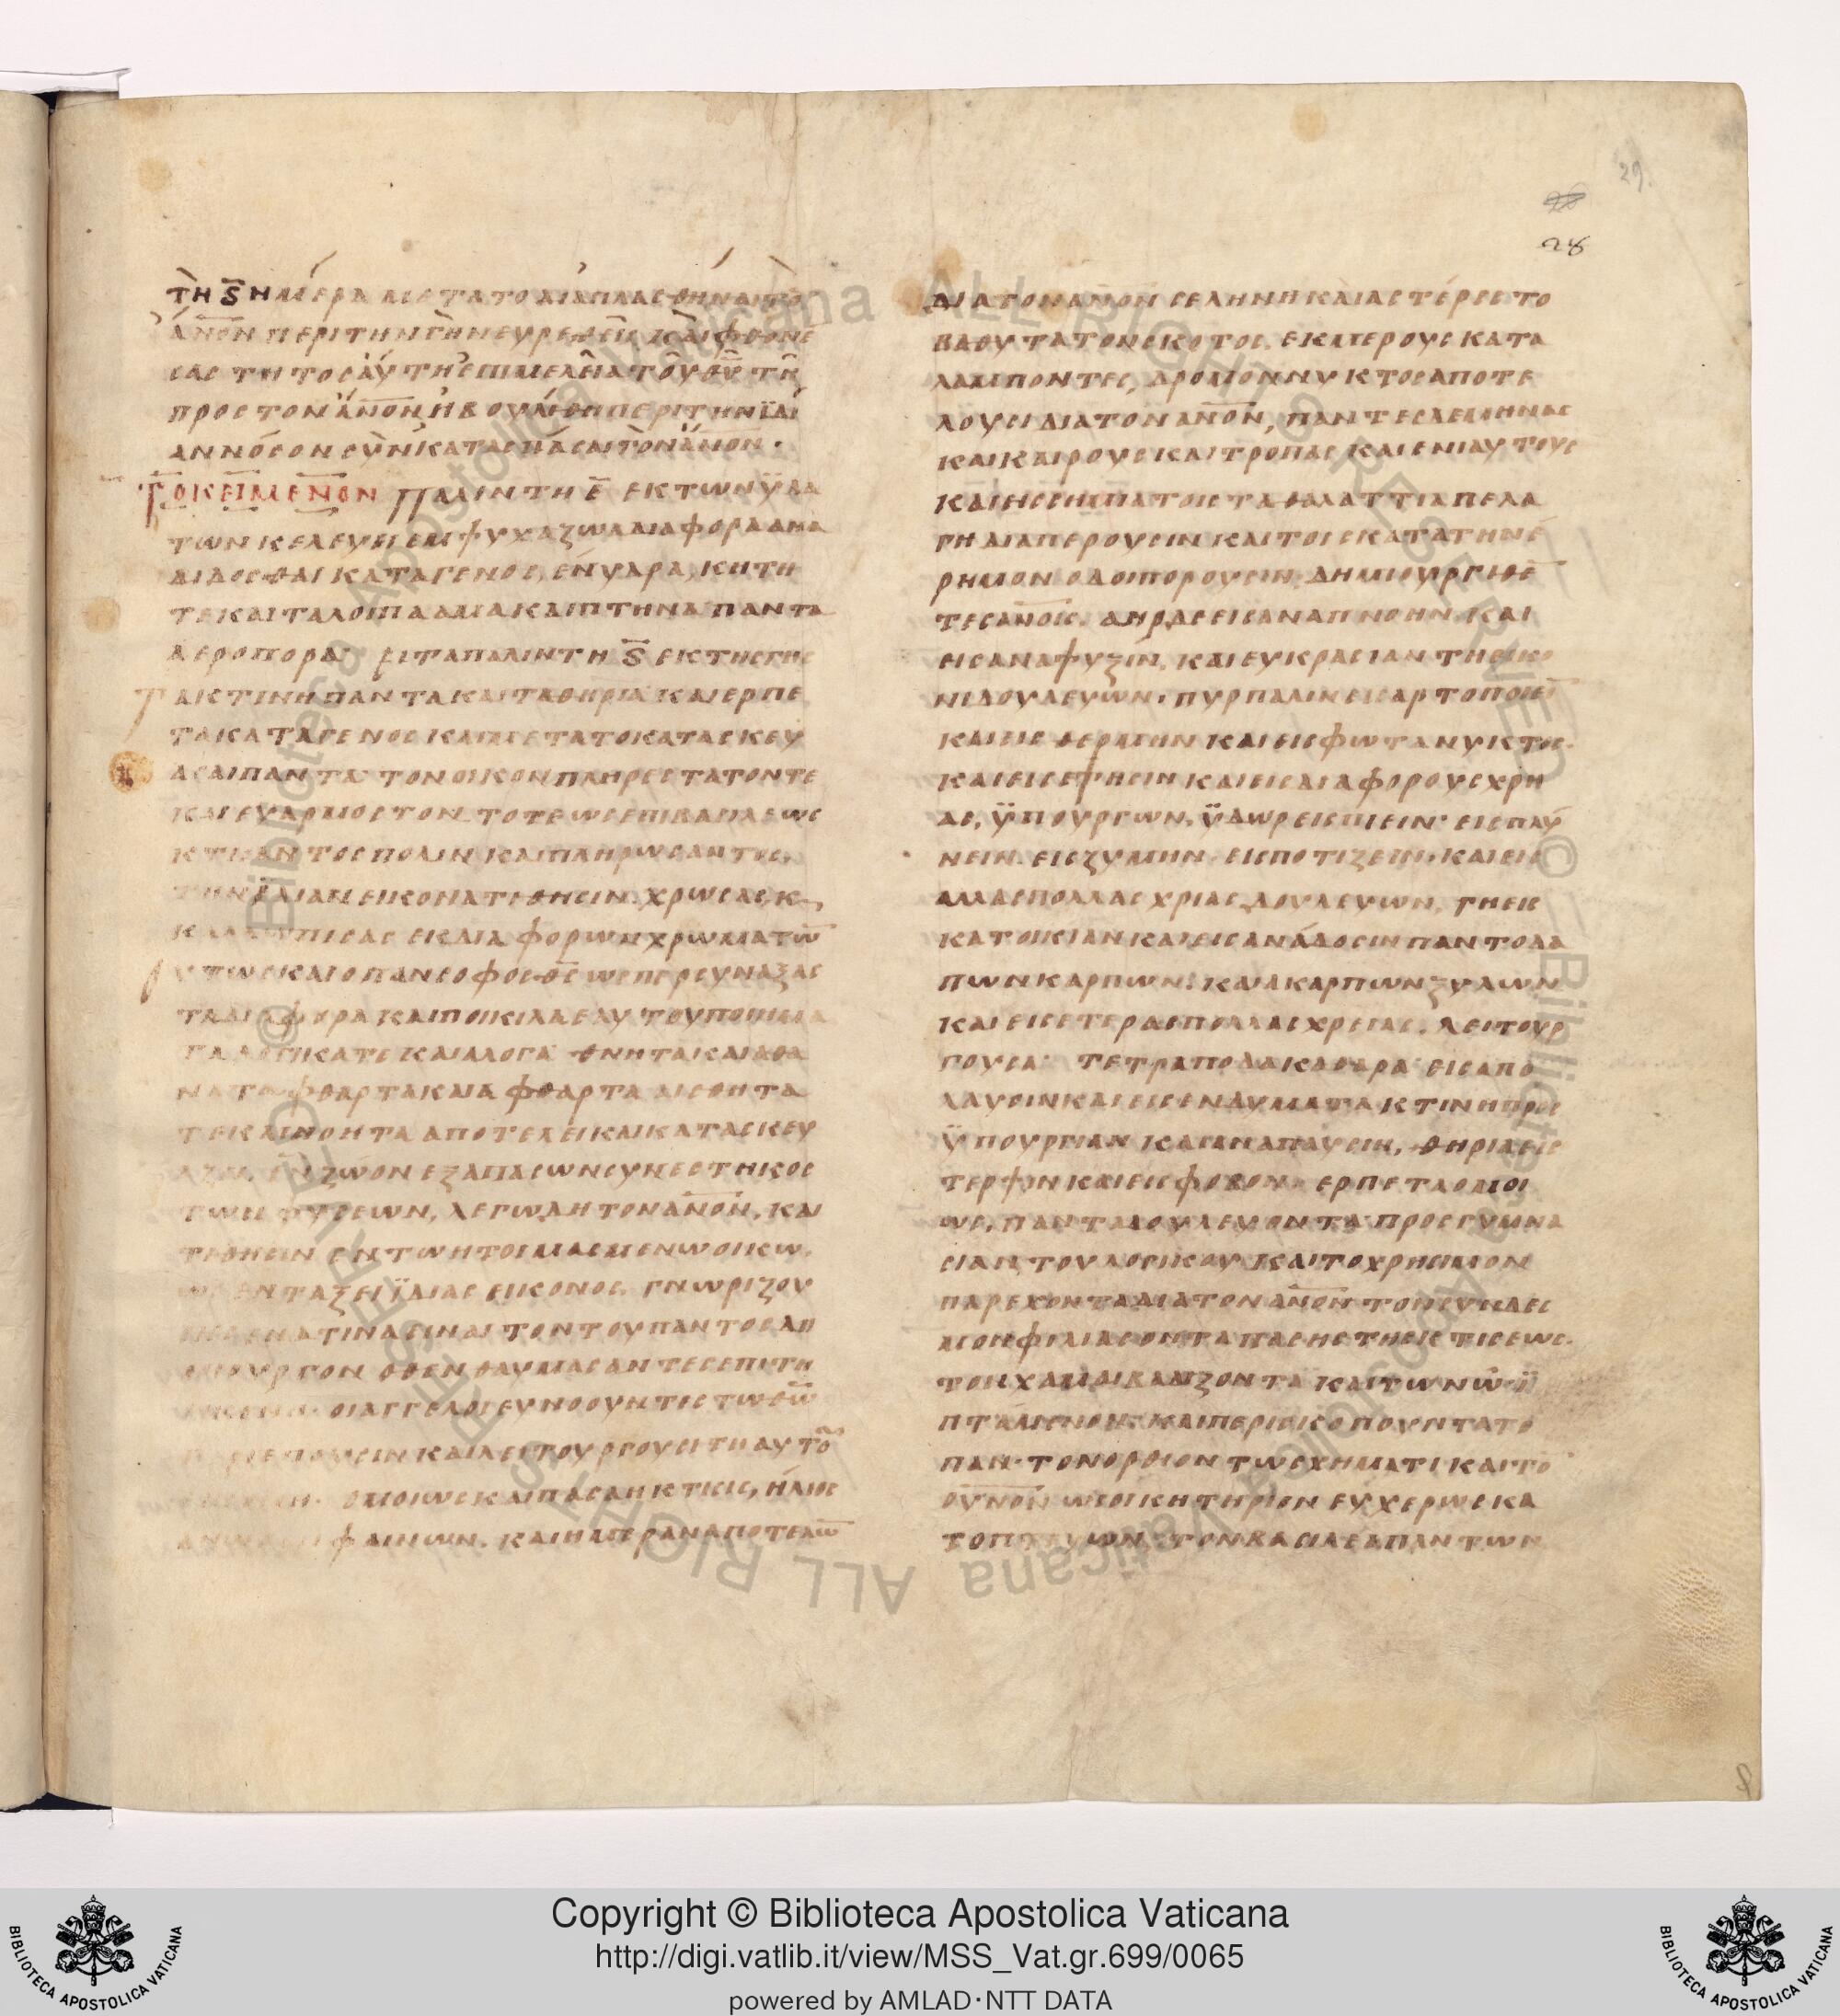 29.
28
ΤΗ Ϛ ΗΜΕΡΑ ΜΕΤΑ ΤΟ ΔΙΑΠΛΑΣΘΗΝΑΙ ΤΟΝ
ΑΝΟΝ ΠΕΡΙ ΤΗΝ ΓΗΝ ΕΥΡΕΘΕΙΣ ΚΑΙ ΦΘΟΝΕ
ΣΑΣ ΤΗ ΤΟΣΑΥΤΗ ΕΠΙΜΕΛΕΙΑ ΤΟΥ ΘΥ ΤΗ
ΠΡΟΣ ΤΟΝ ΑΝΟΝ ΗΒΟΥΛΗΘΗ ΠΕΡΙ ΤΗΝ ΪΔΙ
ΑΝ ΝΟΣΟΝ ΣΥΝΚΑΤΑΣΠΑΣΑΙ ΤΟΝ ΑΝΟΝ·
ΤΟ ΚΕΙΜΕΝΟΝ ΠΑΛΙΝ ΤΗ Ε ΕΚ ΤΩΝ ΫΔΑ
ΤΩΝ ΚΕΛΕΥΕΙ ΕΜΨΥΧΑ ΖΩΑ ΔΙΑΦΟΡΑ ΑΝΑ
ΔΙΔΟΣΘΑΙ ΚΑΤΑ ΓΕΝΟΣ, ΕΝΥΔΡΑ, ΚΗΤΗ
ΤΕ ΚΑΙ ΤΑ ΛΟΙΠΑ ΑΜΑ ΚΑΙ ΠΤΗΝΑ ΠΑΝΤΑ
ΑΕΡΟΠΟΡΑ· ΕΙΤΑ ΠΑΛΙΝ ΤΗ Ϛ ΕΚ ΤΗΣ ΓΗΣ
ΤΑ ΚΤΙΝΗ ΠΑΝΤΑ ΚΑΙ ΤΑ ΘΗΡΙΑ ΚΑΙ ΕΡΠΕ
ΤΑ ΚΑΤΑ ΓΕΝΟΣ ΚΑΙ ΜΕΤΑ ΤΟ ΚΑΤΑΣΚΕΥ
ΑΣΑΙ ΠΑΝΤΑ ΤΟΝ ΟΙΚΟΝ ΠΛΗΡΕΣΤΑΤΟΝ ΤΕ
ΚΑΙ ΕΥΑΡΜΟΣΤΟΝ ΤΟΤΕ ΩΣ ΕΠΙ ΒΑΣΙΛΕΩΣ
ΚΤΙΣΑΝΤΟΣ ΠΟΛΙΝ ΚΑΙ ΠΛΗΡΩΣΑΝΤΟΣ,
ΤΗΝ ΪΔΙΑΝ ΕΙΚΟΝΑ ΤΙΘΗΣΙΝ ΧΡΩΣΑΣ, Κ
ΚΑΛΛΩΠΙΣΑΣ ΕΚ ΔΙΑΦΟΡΩΝ ΧΡΩΜΑΤΩ
ΟΥΤΩΣ ΚΑΙ Ο ΠΑΝΣΟΦΟΣ ΘΣ ΩΣΠΕΡ ΕΥΝΑΞΑΣ
ΤΑ ΔΙΑΦΟΡΑ ΚΑΙ ΠΟΙΚΙΛΑ ΕΑΥΤΟΥ ΠΟΙΗΜΑ
ΤΑ ΛΟΓΙΚΑ ΤΕ ΚΑΙ ΑΛΟΓΑ ΘΝΗΤΑ ΚΑΙ ΑΘΑ
ΝΑΤΑ ΦΘΑΡΤΑ ΚΑΙ ΑΦΘΑΡΤΑ ΑΙΣΘΗΤΑ
ΤΕ ΚΑΙ ΝΟΗΤΑ ΑΠΟΤΕΛΕΙ ΚΑΙ ΚΑΤΑΣΚΕΥ
ΑΖΕΙ ΕΝ ΖΩΟΝ ΕΞ ΑΠΑΣΩΝ ΣΥΝΕΣΤΗΚΟΣ
ΤΩΝ ΦΥΣΕΩΝ, ΛΕΓΩ ΔΗ ΤΟΝ ΑΝΟΝ, ΚΑΙ
ΤΙΘΗΣΙΝ ΕΝ ΤΩ ΗΤΟΙΜΑΣΜΕΝΩ ΟΙΚΩ,
ΩΣ ΕΝ ΤΑΞΕΙ ΪΔΙΑΣ ΕΙΚΟΝΟΣ, ΓΝΩΡΙΖΟΥ
ΕΝΑ ΤΙΝΑ ΕΙΝΑΙ ΤΟΝ ΤΟΥ ΠΑΝΤΟΣ ΔΗ
ΜΙΟΥΡΓΟΝ ΟΘΕΝ ΘΑΥΜΑΣΑΝΤΕΣ ΕΠΙ ΤΗ
ΕΙΚΟΝΙ ΟΙ ΑΓΓΕΛΟΙ ΕΥΝΟΟΥΝΤΕΣ ΤΩ ΘΩ
ΠΕΡΙΕΠΟΥΣΙΝ ΚΑΙ ΛΕΙΤΟΥΡΓΟΥΣΙ ΤΗ ΑΥΤΟΥ
ΕΙΚΟΝΙ. ΟΜΟΙΩΣ ΚΑΙ ΠΑΣΑ Η ΚΤΙΣΙΣ, ΗΛΙΟΣ
ΑΝΩΘΕΝ ΦΑΙΝΩΝ, ΚΑΙ ΗΜΕΡΑΝ ΑΠΟΤΕΛΩ
ΔΙΑ ΤΟΝ ΑΝΟΝ ΣΕΛΗΝΗ ΚΑΙ ΑΣΤΕΡΕΣ ΤΟ
ΒΑΘΥΤΑΤΟΝ ΣΚΟΤΟΣ, ΕΚΑΤΕΡΟΥΣ ΚΑΤΑ
ΛΑΜΠΟΝΤΕΣ, ΔΡΟΜΟΝ ΝΥΚΤΟΣ ΑΠΟΤΕ
ΛΟΥΣΙ ΔΙΑ ΤΟΝ ΑΝΟΝ, ΠΑΝΤΕΣ ΔΕ ΜΗΝΑΣ
ΚΑΙ ΚΑΙΡΟΥΣ ΚΑΙ ΤΡΟΠΑΣ ΚΑΙ ΕΝΙΑΥΤΟΥΣ
ΚΑΙ ΕΙΣ ΣΗΜΙΑ ΤΟΙΣ ΤΑ ΘΑΛΑΤΤΙΑ ΠΕΛΑ
ΓΗ ΔΙΑΠΕΡΟΥΣΙΝ ΚΑΙ ΤΟΙΣ ΚΑΤΑ ΤΗΝ Ε
ΡΗΜΟΝ ΟΔΟΙΠΟΡΟΥΣΙΝ, ΔΗΜΙΟΥΡΓΙΘΕ
ΤΕΣ ΑΝΟΙΣ. ΑΗΡ ΔΕ ΕΙΣ ΑΝΑΠΝΟΗΝ ΚΑΙ
ΕΙΣ ΑΝΑΨΥΞΙΝ, ΚΑΙ ΕΥΚΡΑΣΙΑΝ ΤΗ ΕΙΚΟ
ΝΙ ΔΟΥΛΕΥΩΝ· ΠΥΡ ΠΑΛΙΝ ΕΙΣ ΑΡΤΟΠΟΙΕΙ
ΚΑΙ ΕΙΣ ΘΕΡΜΗΝ ΚΑΙ ΕΙΣ ΦΩΤΑ ΝΥΚΤΟΣ·
ΚΑΙ ΕΙΣ ΕΨΗΣΙΝ ΚΑΙ ΕΙΣ ΔΙΑΦΟΡΟΥΣ ΧΡΗ
ΑΣ, ΫΠΟΥΡΓΩΝ, ΫΔΩΡ ΕΙΣ ΠΙΕΙΝ· ΕΙΣ ΠΛΥ
ΝΕΙΝ ΕΙΣ ΖΥΜΗΝ, ΕΙΣ ΠΟΤΙΖΕΙΝ, ΚΑΙ ΕΙΣ
ΑΛΛΑΣ ΠΟΛΛΑΣ ΧΡΙΑΣ, ΔΟΥΛΕΥΩΝ, ΓΗ ΕΙΣ
ΚΑΤΟΙΚΙΑΝ ΚΑΙ ΕΙΣ ΑΝΑΔΟΣΙΝ ΠΑΝΤΟΔΑ
ΠΩΝ ΚΑΡΠΩΝ, ΚΑΙ ΑΚΑΡΠΩΝ ΞΥΛΩΝ
ΚΑΙ ΕΙΣ ΕΤΕΡΑΣ ΠΟΛΛΑΣ ΧΡΕΙΑΣ, ΛΕΙΤΟΥΡ
ΓΟΥΣΑ· ΤΕΤΡΑΠΟΔΑ ΚΑΘΑΡΑ ΕΙΣ ΑΠΟ
ΛΑΥΣΙΝ ΚΑΙ ΕΙΣ ΕΝΔΥΜΑΤΑ ΚΤΙΝΗ ΠΡΟΣ
ΫΠΟΥΡΓΙΑΝ ΚΑΙ ΑΝΑΠΑΥΣΙΝ, ΘΗΡΙΑ ΕΙΣ
ΤΕΡΨΙΝ ΚΑΙ ΕΙΣ ΦΟΒΟΝ· ΕΡΠΕΤΑ ΟΜΟΙ
ΩΣ, ΠΑΝΤΑ ΔΟΥΛΕΥΟΝΤΑ ΠΡΟΣ ΓΥΜΝΑ
ΣΙΑΝ ΤΟΥ ΛΟΓΙΚΟΥ ΚΑΙ ΤΟ ΧΡΗΣΙΜΟΝ
ΠΑΡΕΧΟΝΤΑ ΔΙΑ ΤΟΝ ΑΝΟΝ ΤΟΝ ΣΥΝΔΕΣ
ΜΟΝ ΦΙΛΙΑΣ ΟΝΤΑ ΠΑΣΗΣ ΤΗΣ ΚΤΙΣΕΩΣ.
ΤΟΝ ΧΑΜΑΙ ΒΑΔΙΖΟΝΤΑ ΚΑΙ ΤΩ ΝΩ
ΠΤΑΜΕΝΟΝ ΚΑΙ ΠΕΡΙΣΚΟΠΟΥΝΤΑ ΤΟ
ΠΑΝ· ΤΟΝ ΟΡΘΙΟΝ ΤΩ ΣΧΗΜΑΤΙ ΚΑΙ ΤΟ
ΟΥΝΟΝ ΩΣ ΟΙΚΗΤΗΡΙΟΝ ΕΥΧΕΡΩΣ ΚΑ
ΤΟΠΤΕΥΩΝ· ΤΟΝ ΒΑΣΙΛΕΑ ΠΑΝΤΩΝ
Copyright © Biblioteca Apostolica Vaticana
http://digi.vatlib.it/view/MSS_Vat.gr.699/0065
powered by AMLAD·NTT DATA
BIBLIOTECA APOSTOLICA VATICANA
BIBLIOTECA APOSTOLICA VATICANA